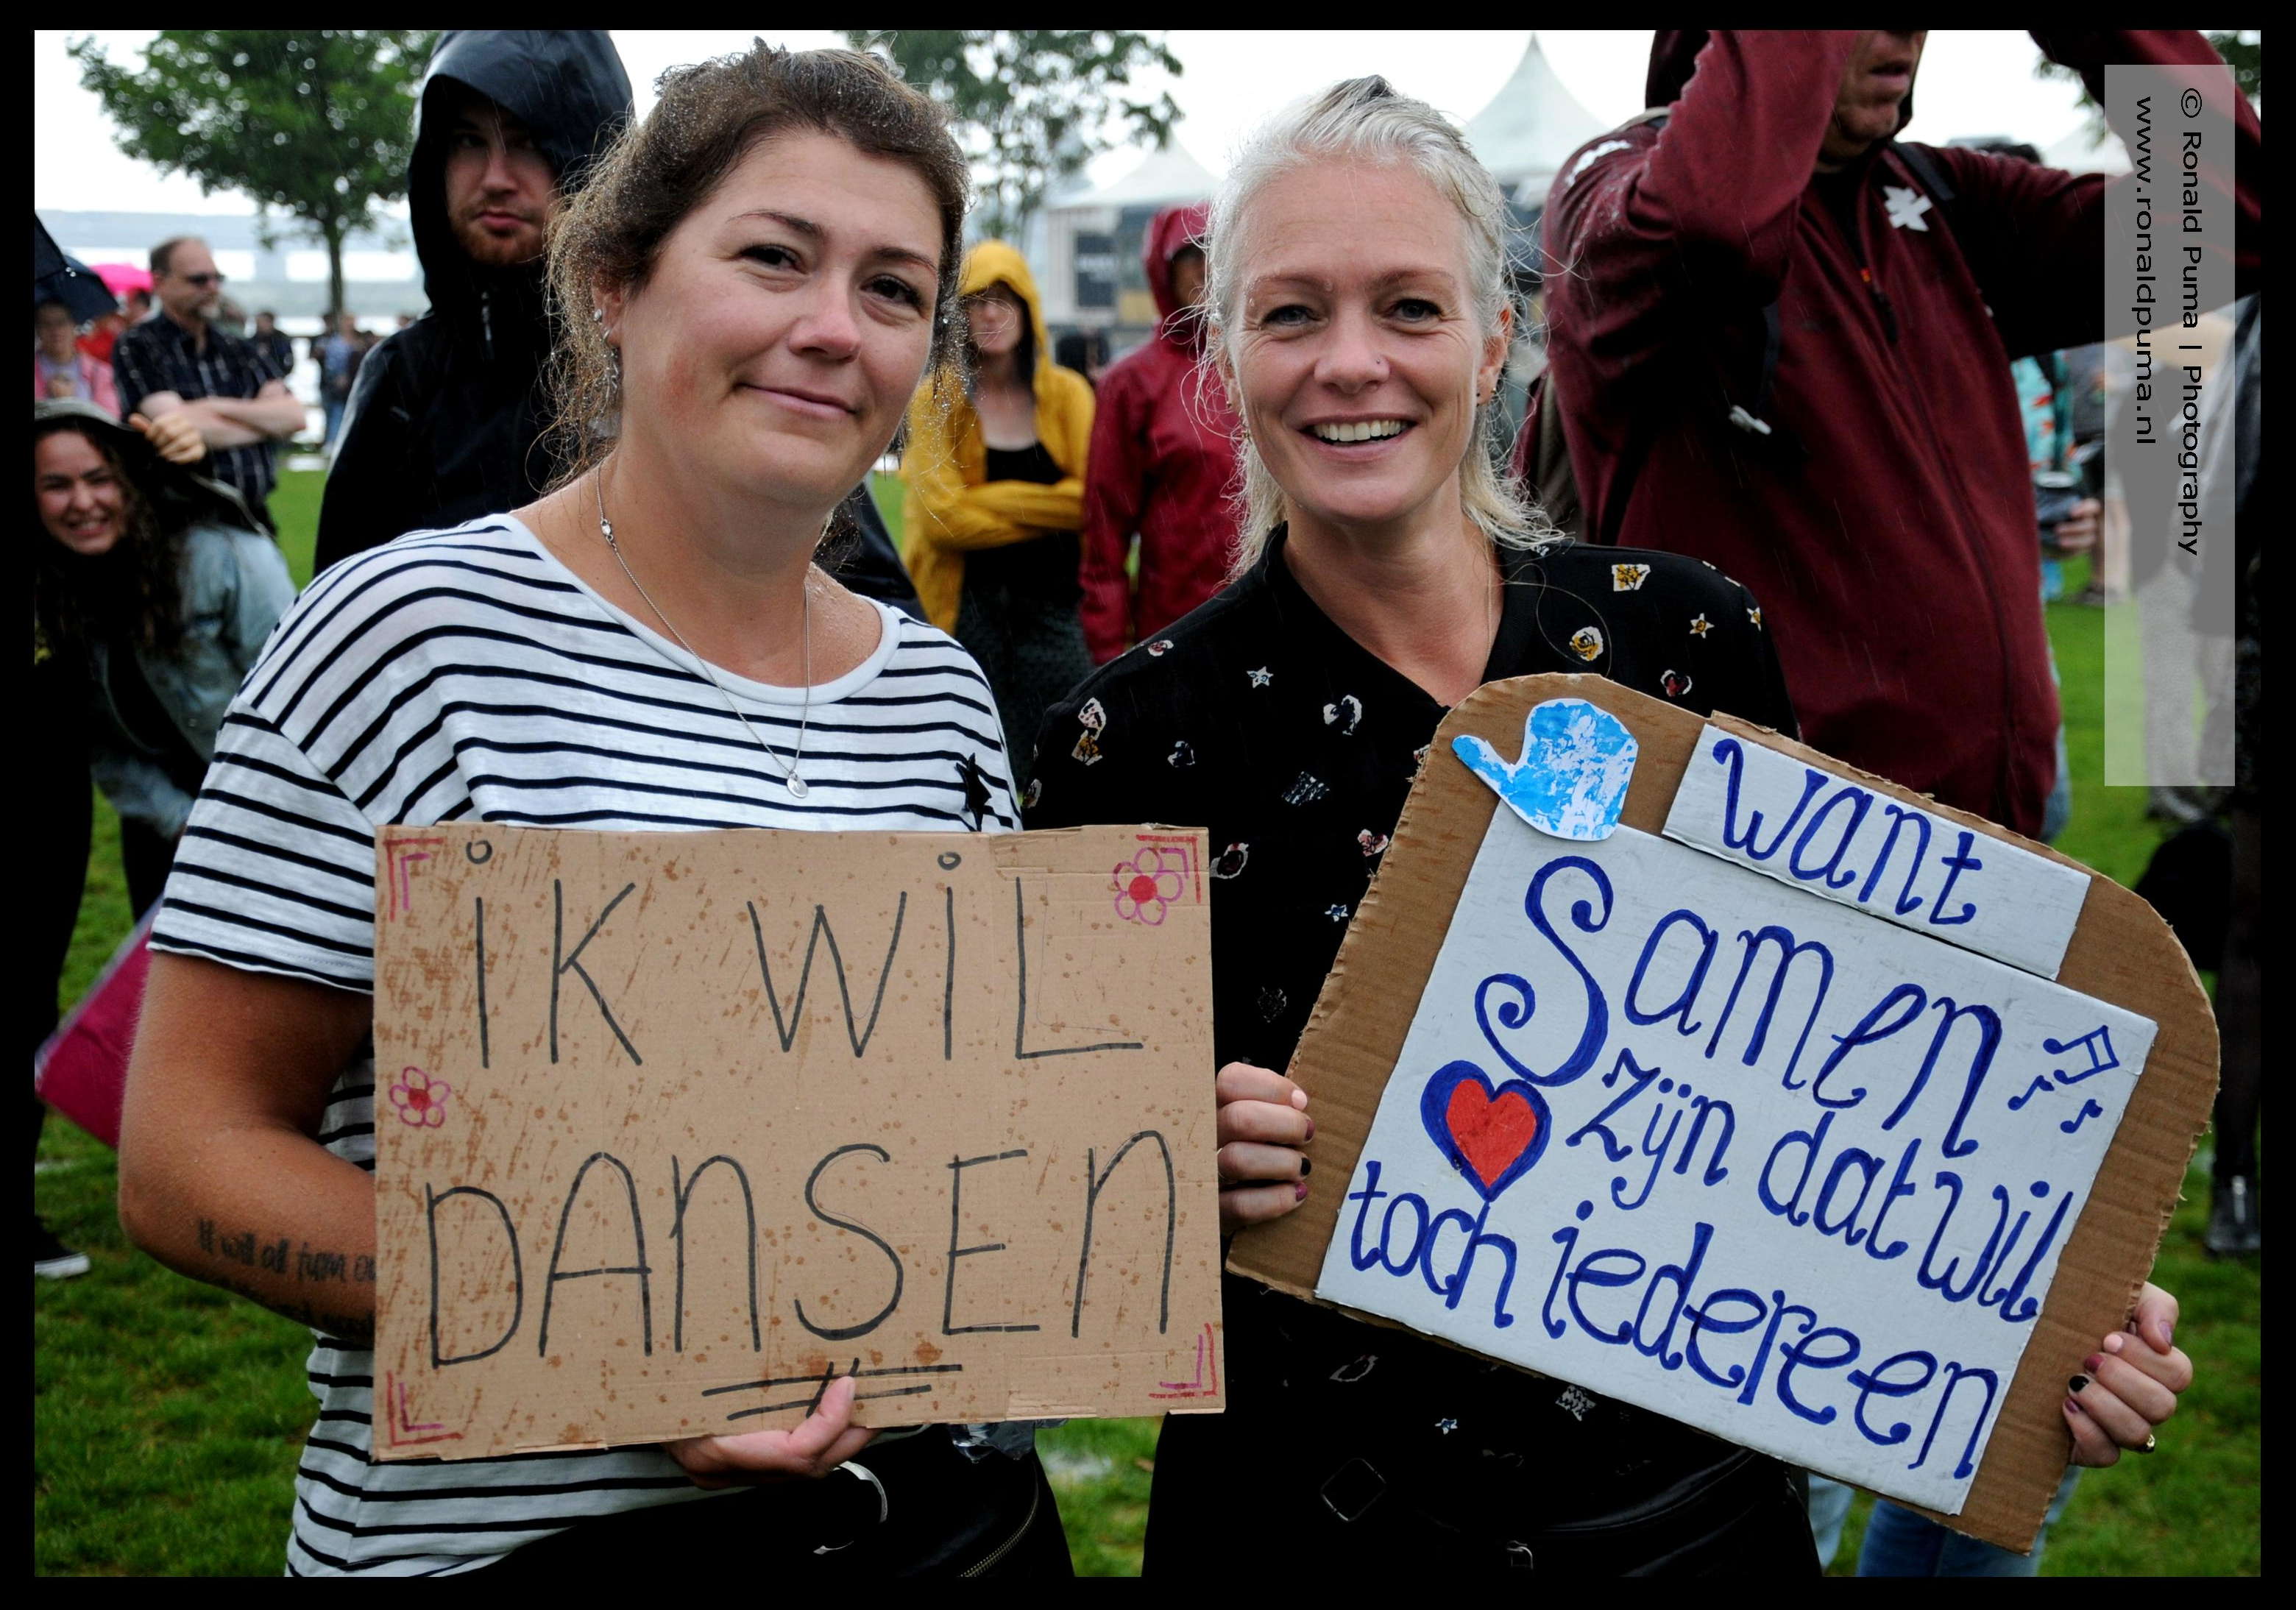 iK WiL
DAnSEn
Want
Samen
zijn dat wil
toch iedereen
It will all turn
© Ronald Puma | Photography
www.ronaldpuma.nl